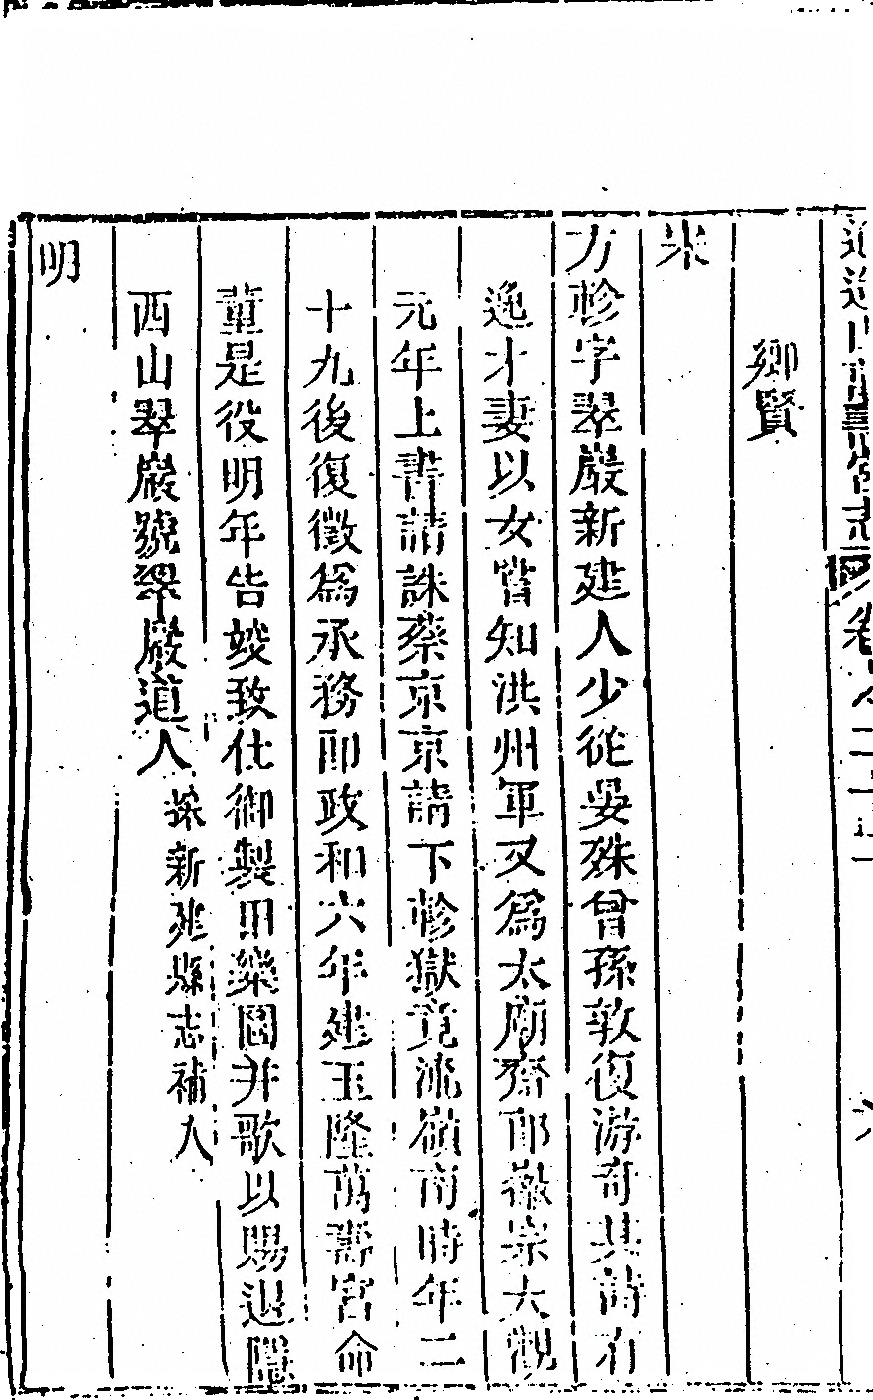 逍遙山萬壽宮志 卷之二十一
鄉賢
宋
方軫字翠巖新建人少從晏殊曾孫敦復游奇其詩有
逸才妻以女嘗知洪州軍又為太廟齋郎徽宗大觀
元年上書請誅蔡京京請下軫獄竟流嶺南時年二
十九後復徵為承務郎政和六年建玉隆萬壽宮命
董是役明年告竣致仕御製田樂圖并歌以賜退隱
西山翠巖號翠巖道人 採新建縣志補入
明